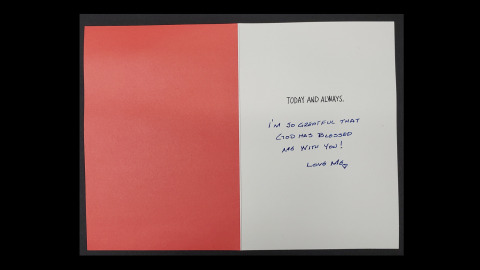 TODAY AND ALWAYS.
I'M SO GREATFUL THAT
GOD HAS BLESSED
ME WITH YOU!
LOVE ME